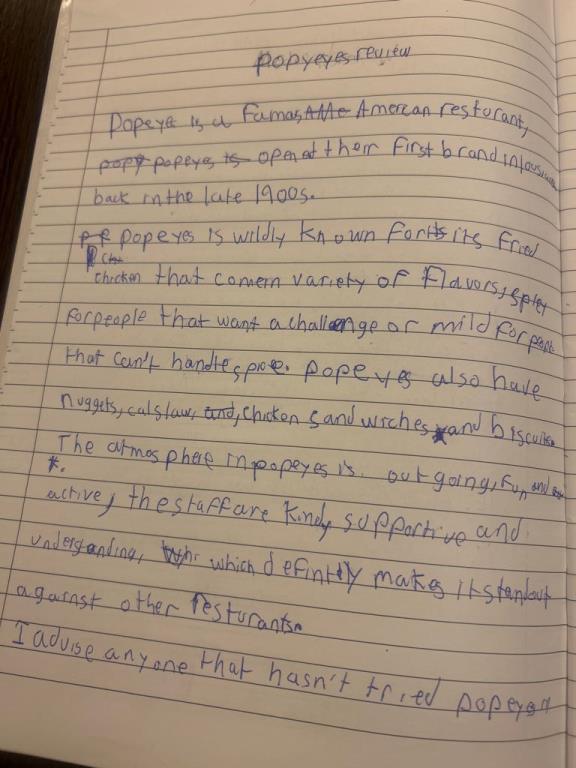 popyeyes review
Popeye is a famas Amercan restorant,
popeyes opened their first brand in
back in the late 1900s.
popeyes is wildly known for its fried
chicken that come in variety of flavors, spicy
for people that want a challenge or mild for people
that can't handle spice. popeyes also have
nuggets, calslaw, chicken sandwiches and biscuits.
The atmosphere in popeyes is outgoing, fun and
active, the staff are kind, supportive and
understanding, which definitly makes it standout
against other resturants.
I advise anyone that hasn't tried popeyes